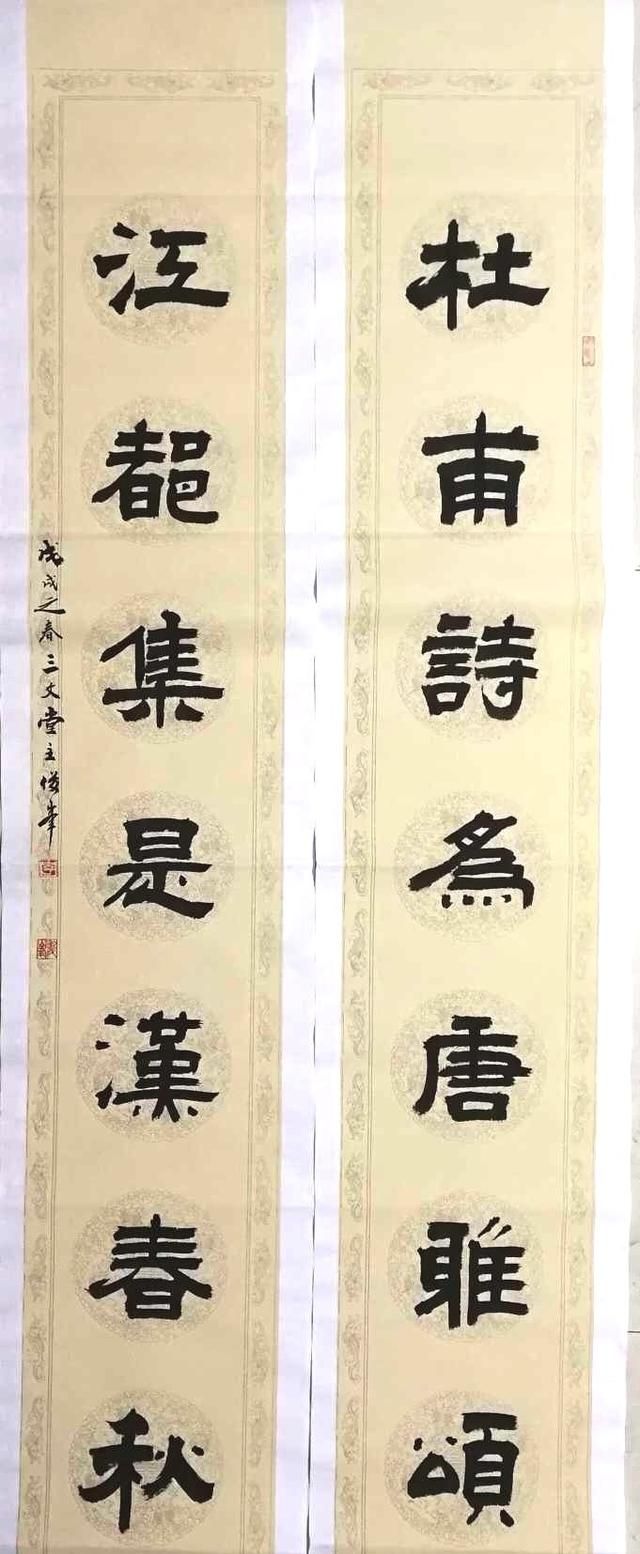 杜甫詩為唐雅頌
江都集是漢春秋
戊戌之春三文堂主俊峯